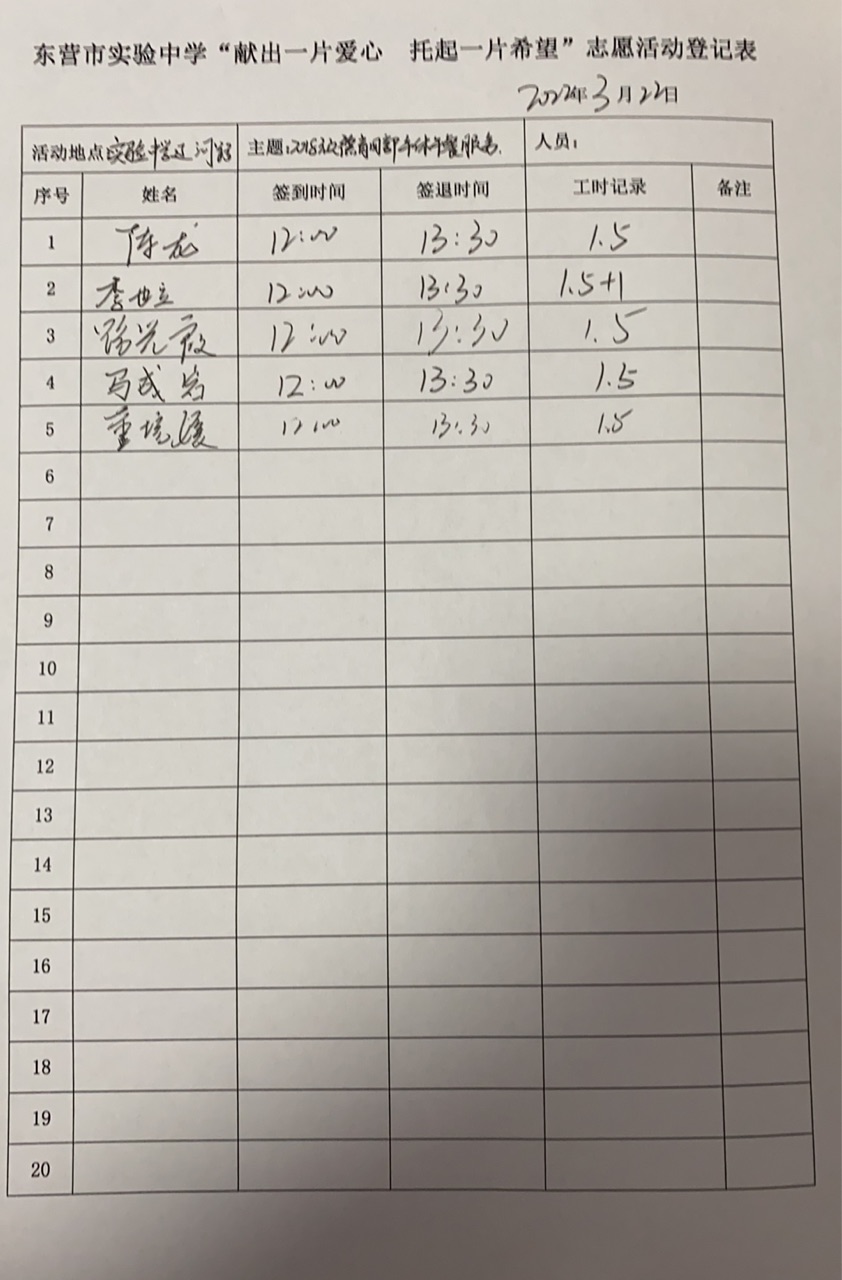 东营市实验中学“献出一片爱心 托起一片希望”志愿活动登记表
2022年3月22日
活动地点实验中学辽河路 主题: 服务. 人员:
序号 姓名 签到时间 签退时间 工时记录 备注
1 陈龙 12:00 13:30 1.5
2 李世立 12:00 13:30 1.5+1
3 12:00 13:30 1.5
4 马成岩 12:00 13:30 1.5
5 董境媛 12:00 13:30 1.5
6
7
8
9
10
11
12
13
14
15
16
17
18
19
20